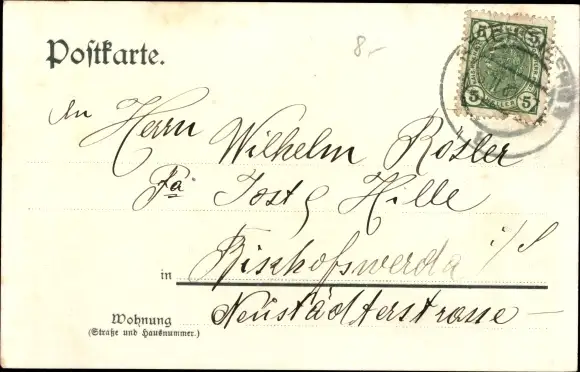 Postkarte.
8.-
An
Herrn Wilhelm Rösler
Fa Jost & Hille
in Bischofswerda i/S
Neustädterstrasse
Wohnung
(Straße und Hausnummer.)
5 5
5 5